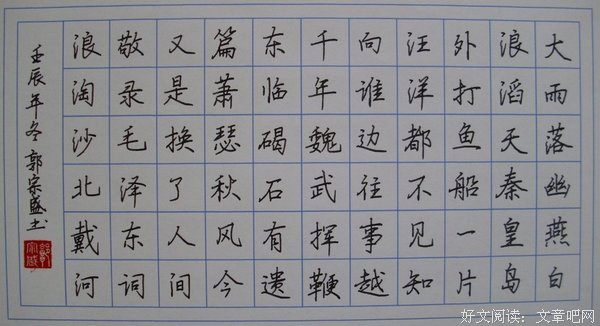 大雨落幽燕白
浪滔天秦皇岛
外打鱼船一片
汪洋都不见知
向谁边往事越
千年魏武挥鞭
东临碣石有遗
篇萧瑟秋风今
又是换了人间
敬录毛泽东词
浪淘沙北戴河
壬辰年冬郭宗盛书
好文阅读：文章吧网